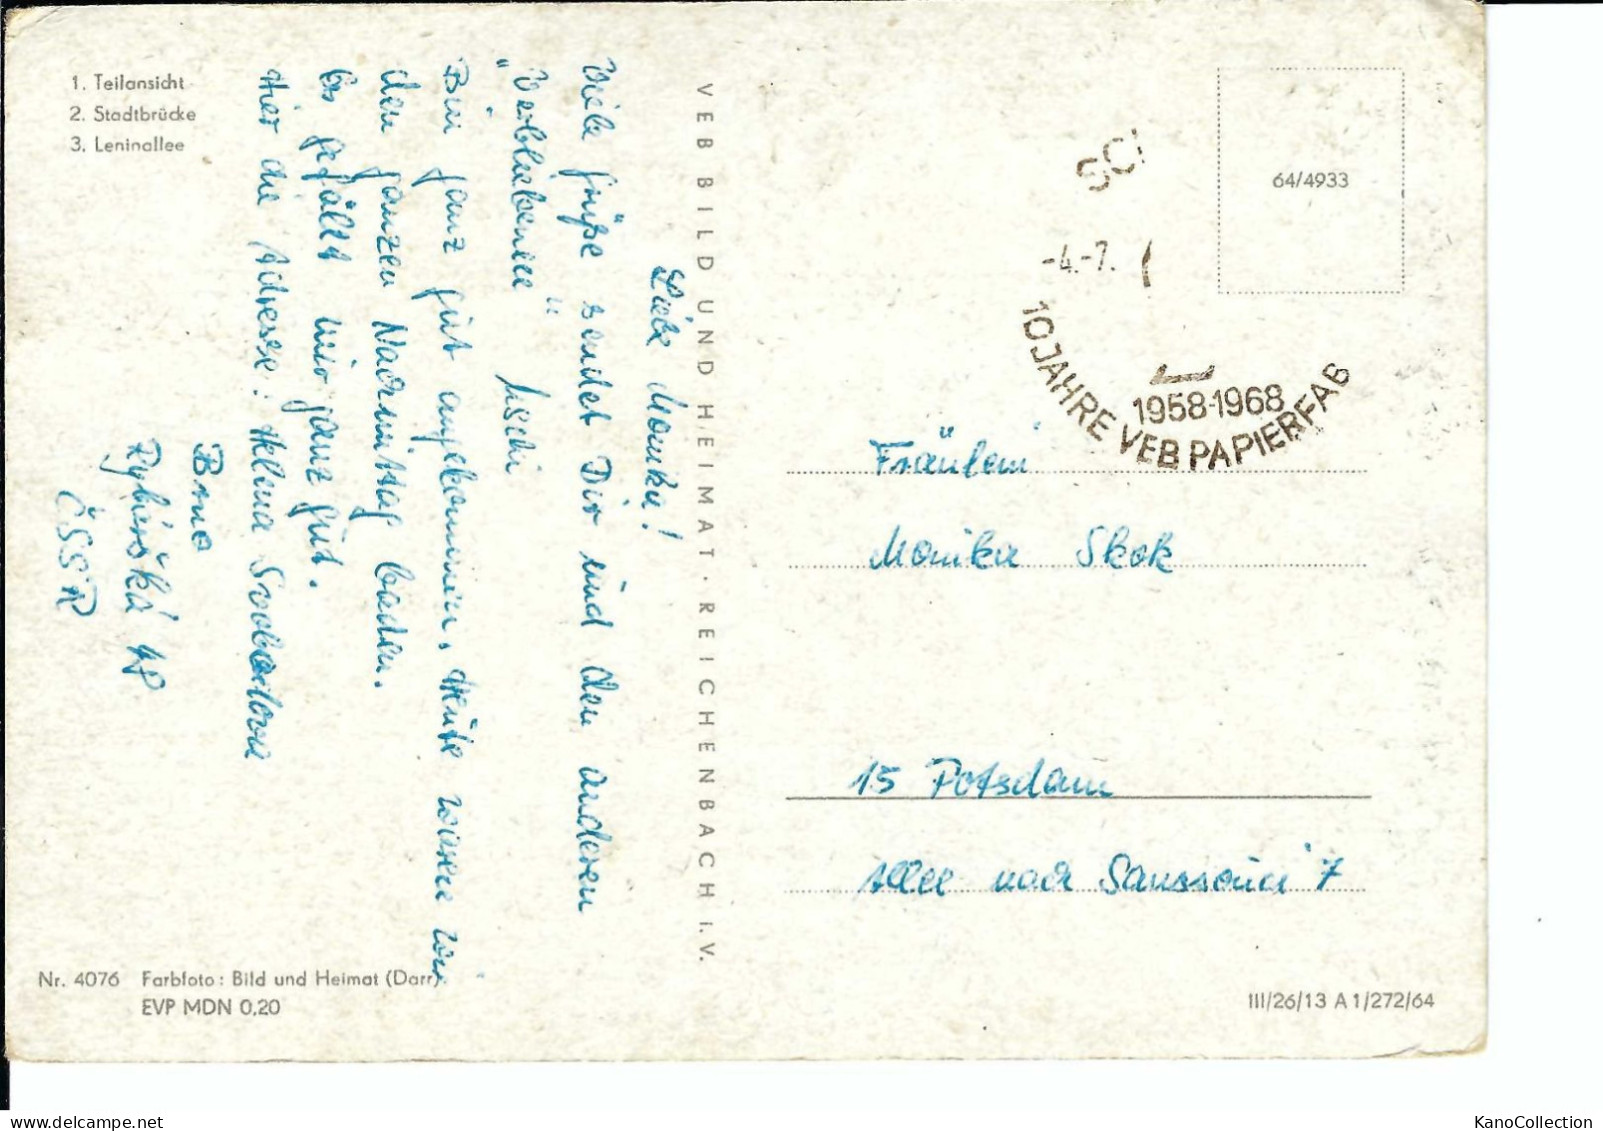 1. Teilansicht
2. Stadtbrücke
3. Leninallee
Liebe Monika!
Viele Grüße sendet Dir und den anderen
"Verbliebenen" Uschi
Bin ganz gut angekommen. Heute waren wir
den ganzen Nachmittag baden.
Es gefällt mir ganz gut.
Hier die Adresse: Helena Svobodova
Brno
Rybářská 48
ČSSR
VEB BILD UND HEIMAT · REICHENBACH I. V.
64/4933
-4.-7.
1958-1968
10 JAHRE VEB PAPIERFAB
Fräulein
Monika Skok
15 Potsdam
Allee nach Sanssouci 7
Nr. 4076 Farbfoto: Bild und Heimat (Darr)
EVP MDN 0,20
III/26/13 A 1/272/64
KanoCollection